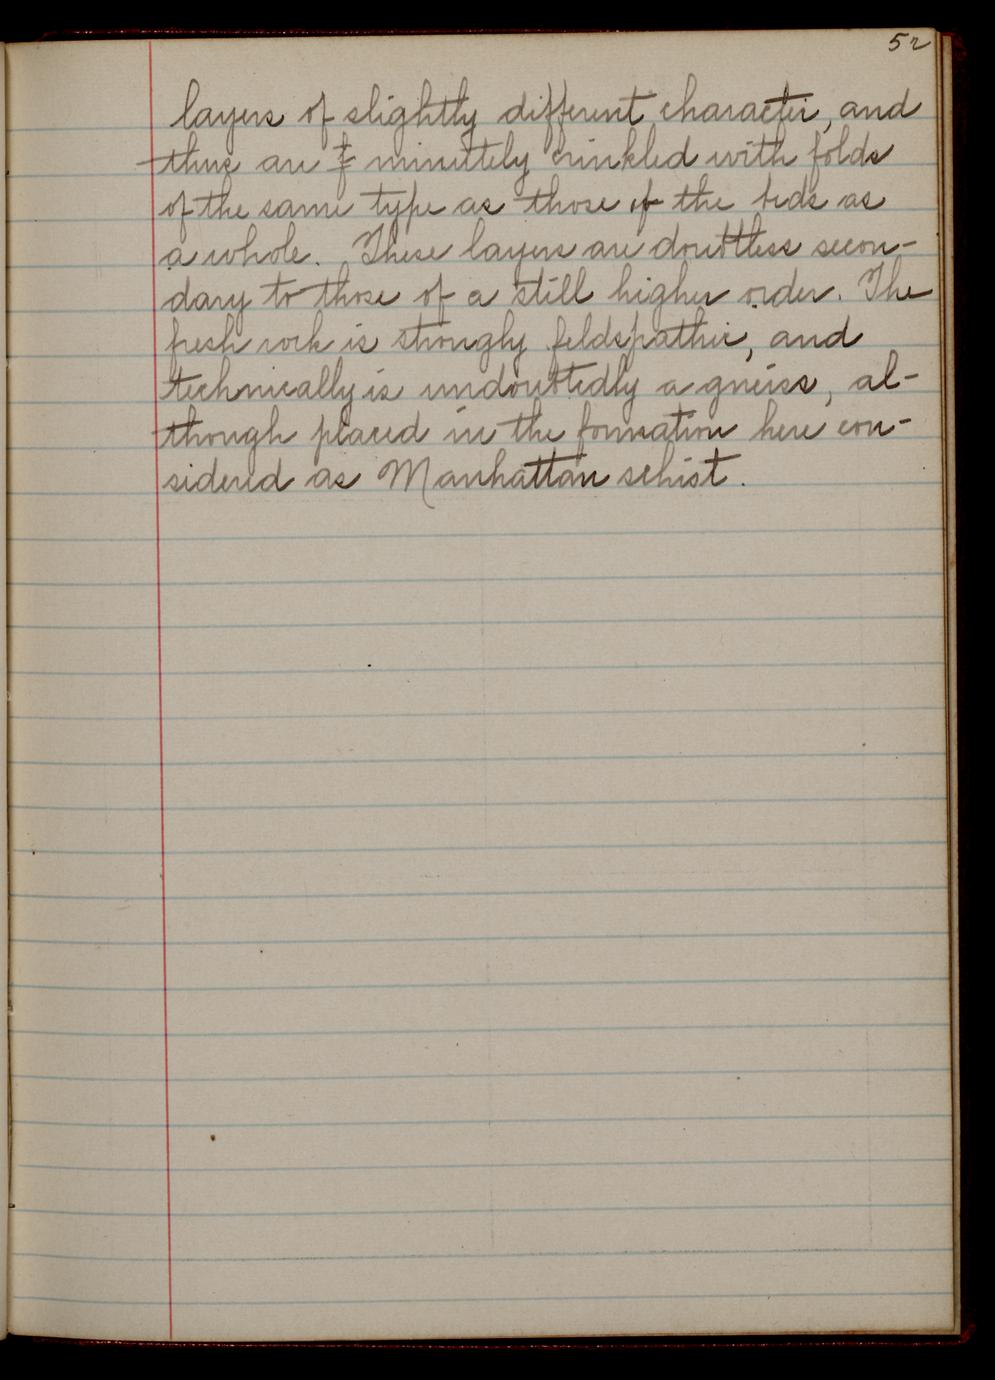 52
layers of slightly different character, and
these are f minutely crinkled with folds
of the same type as those of the beds as
a whole. These layers are doubtless secon-
dary to those of a still higher order. The
fresh rock is strongly feldspathic, and
technically is undoubtedly a gneiss, al-
though placed in the formation here con-
sidered as Manhattan schist.